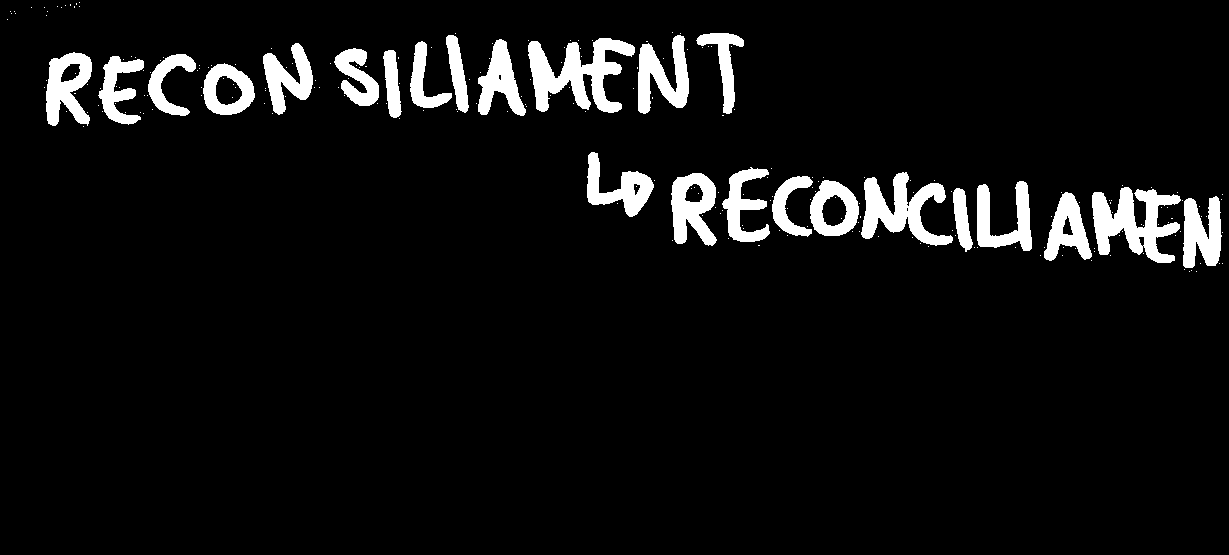 RECONSILIAMENT
↳ RECONCILIAMEN